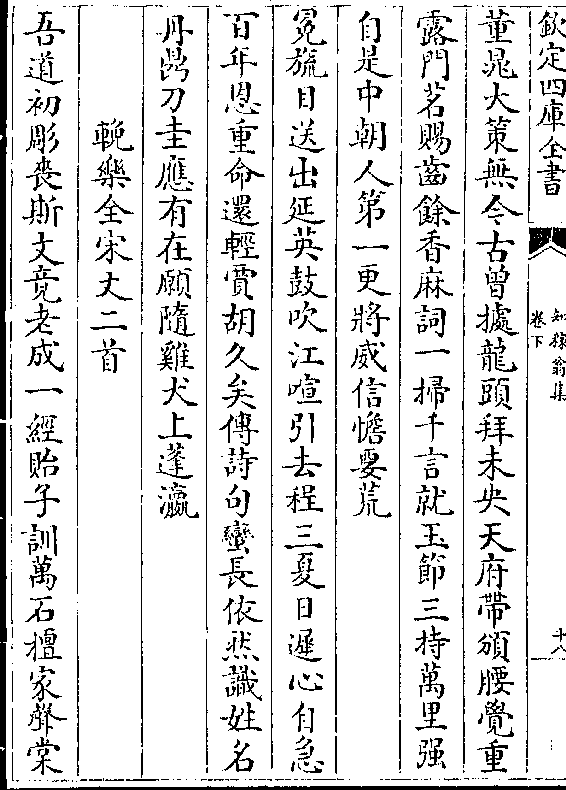 欽定四庫全書
知稼翁集
卷下
十八
董晁大策無今古曾據龍頭拜未央天府帶頒腰覺重
露門茗賜齒餘香麻詞一掃千言就玉節三持萬里强
自是中朝人第一更將威信憺要荒
冕旒目送出延英鼓吹江喧引去程三夏日遲心自急
百年恩重命還輕賈胡久矣傳詩句蠻長依然識姓名
丹鼎刀圭應有在願隨雞犬上蓬瀛
輓樂全宋丈二首
吾道初彫喪斯文竟老成一經貽子訓萬石擅家聲棠